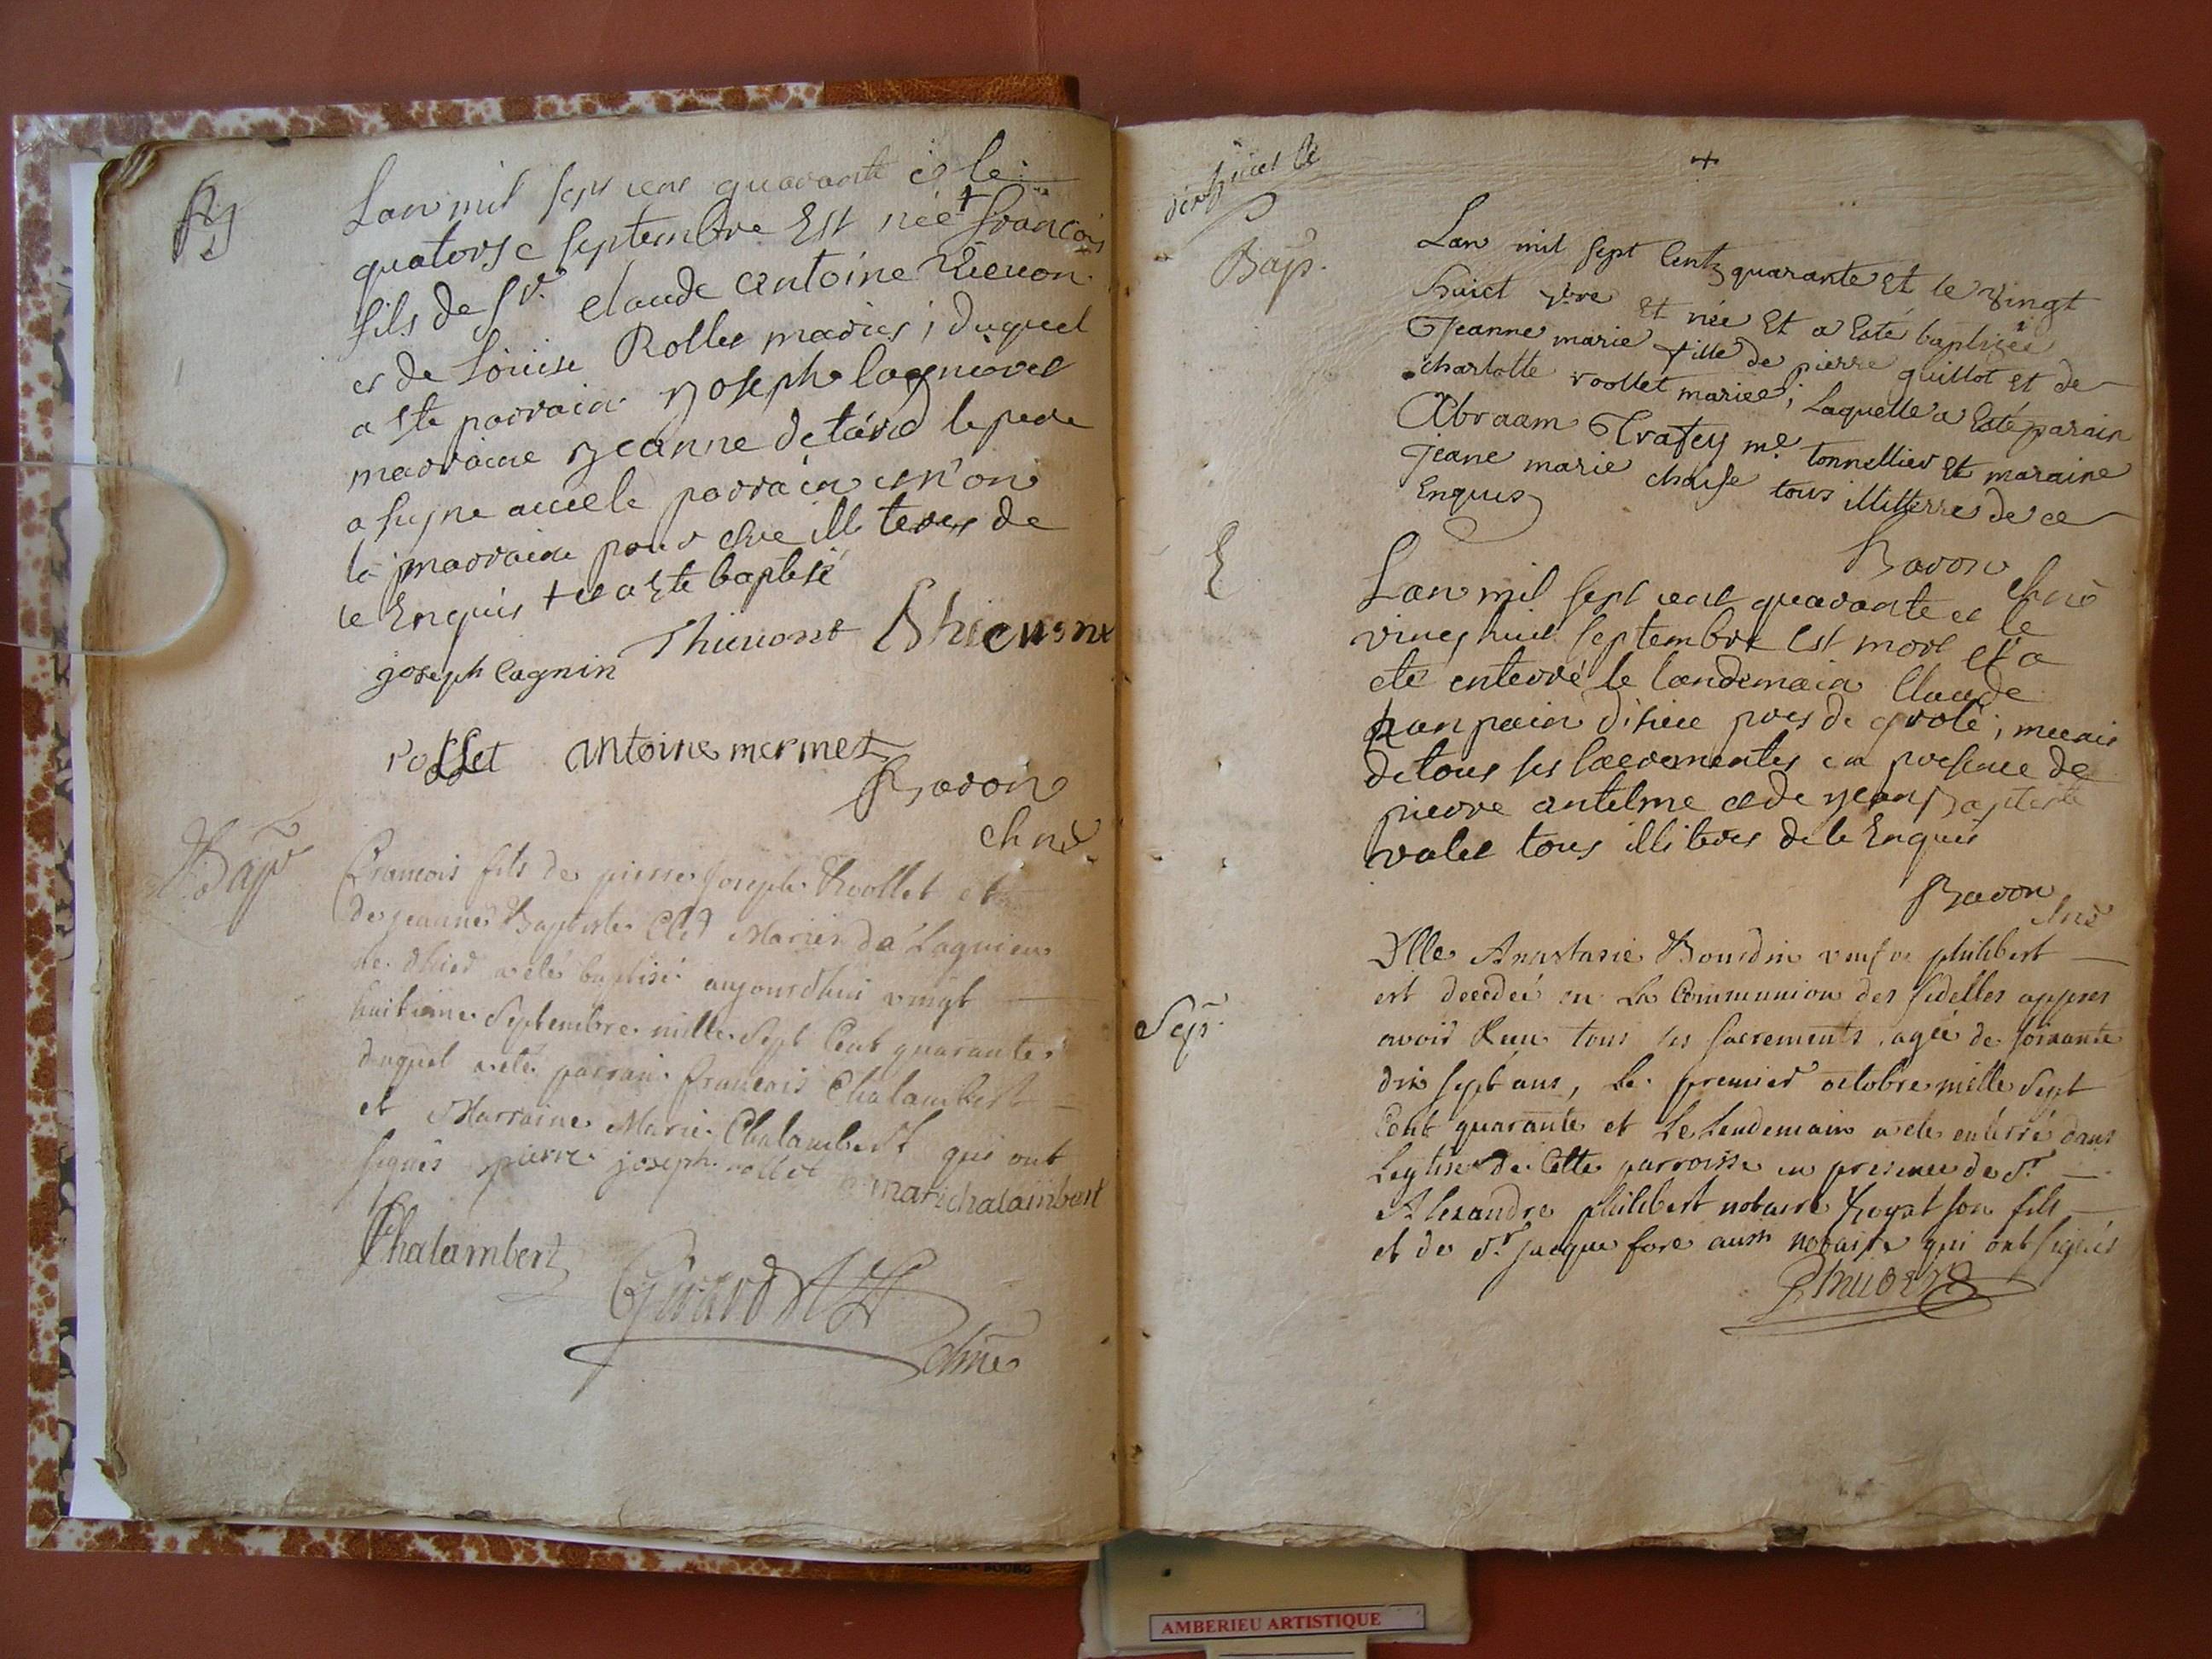 B
Lan mil sept cens quarante et le
quatorse septembre Est née + francois
fils de sr. claude antoine
et de Louise Rollet maries ; duquel
a ste parrain joseph lagnin
marraine jeanne le pere
a signe avec le parrain et non
la marraine pour etre illiteres de
ce Enquis + et a Este baptisé
joseph lagnin Thievont Thievont
rosset antoine mermet
Baron
chne
Bap
Francois fils de pierre joseph Roollet et
de jeanne Baptiste Mariés de Lagnieu
a été baptisé aujourdhui vingt
huitieme Septembre mille Sept Cent quarante
duquel a eté parrain francois Chalambert
et Marraine Marie Chalambert qui ont
signés pierre joseph rollet mari chalambert
Chalambert
Girard
chne
+
Bap.
Lan mil sept Centz quarante Et le vingt
huict 7bre Et née Et a Esté baptizée
Jeanne marie fille de pierre quillot Et de
charlotte roollet mariee ; Laquelle a Esté parain
Abraam me. tonnellier Et maraine
Jeane marie chaise tous illitterres de ce
Enquis
Baron
chne
E
Lan mil sept cent quarante et le
vingt huit septembre Est mort et a
eté enterré le landemain Claude
pres de grolé ; muni
de tous ses sacrementes en presence de
pierre antelme et de jean Baptiste
valet tous illiteres de le Enquis
Baron
chne
Sep.
Dlle Anastasie Bourdin veufve philibert
est decedeé en La Communion des fidelles appres
avoir Reeu tous les sacrements agée de soixante
dix sept ans, le premier octobre mille Sept
Cent quarante et Le Lendemain a eté enterré dans
Leglise de Cette parroisse en presence de Sr
Alexandre philibert notaire Royat son fils
et de Sr jacque fore aussi notaire qui ont signés
AMBERIEU ARTISTIQUE